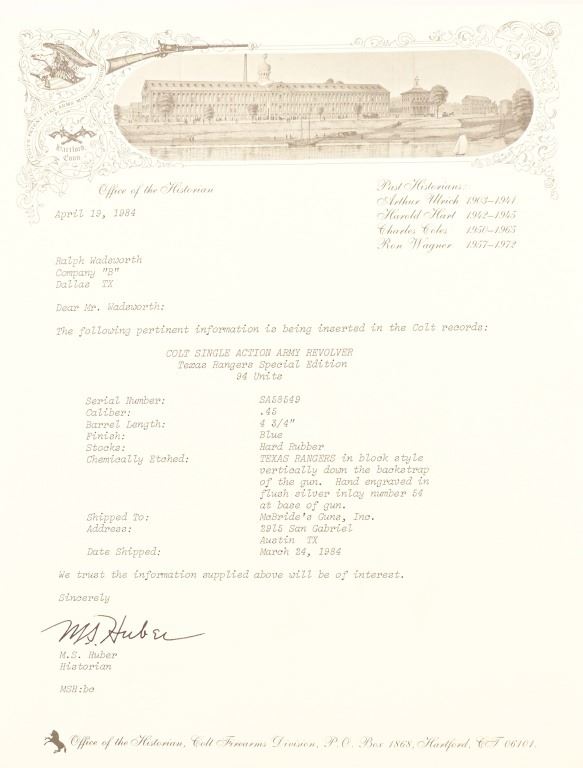 Hartford,
Conn.
Office of the Historian
Past Historians:
Arthur Ulrich 1903-1941
Harold Hart 1942-1945
Charles Coles 1950-1965
Ron Wagner 1957-1972
April 19, 1984
Ralph Wadsworth
Company "B"
Dallas TX
Dear Mr. Wadsworth:
The following pertinent information is being inserted in the Colt records:
COLT SINGLE ACTION ARMY REVOLVER
Texas Rangers Special Edition
94 Units
Serial Number: SA58549
Caliber: .45
Barrel Length: 4 3/4"
Finish: Blue
Stocks: Hard Rubber
Chemically Etched: TEXAS RANGERS in block style
vertically down the backstrap
of the gun. Hand engraved in
flush silver inlay number 54
at base of gun.
Shipped To: McBride's Guns, Inc.
Address: 2915 San Gabriel
Austin TX
Date Shipped: March 24, 1984
We trust the information supplied above will be of interest.
Sincerely
M.S. Huber
M.S. Huber
Historian
MSH:bc
Office of the Historian, Colt Firearms Division, P.O. Box 1868, Hartford, CT 06101.